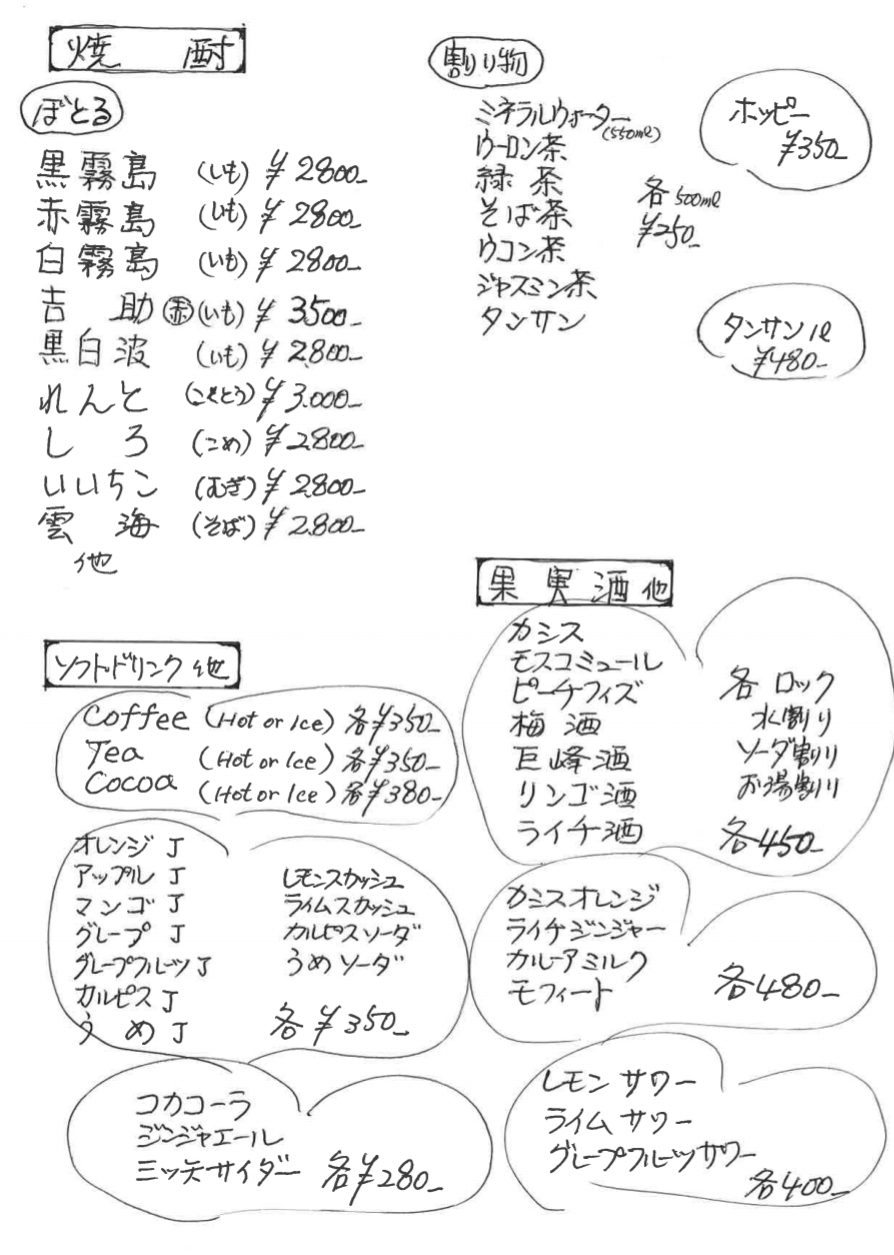 焼酎
ぼとる
黒霧島 (いも) ¥2800-
赤霧島 (いも) ¥2800-
白霧島 (いも) ¥2800-
吉助 ㊍(いも) ¥3500-
黒白波 (いも) ¥2,800-
れんと (こくとう) ¥3,000-
しろ (こめ) ¥2,800-
いいちこ (むぎ) ¥2,800-
雲海 (そば) ¥2,800-
他
割り物
ミネラルウォーター(550ml)
ウーロン茶
緑茶
そば茶
ウコン茶
ジャスミン茶
タンサン
各500ml
¥250-
ホッピー
¥350-
タンサン1l
¥480-
ソフトドリンク他
Coffee (Hot or Ice) 各¥350-
Tea (Hot or Ice) 各¥350-
Cocoa (Hot or Ice) 各¥380-
オレンジ J
アップル J
マンゴ J
グレープ J
グレープフルーツ J
カルピス J
うめ J
レモンスカッシュ
ライムスカッシュ
カルピスソーダ
うめソーダ
各¥350-
コカコーラ
ジンジャエール
三ッ矢サイダー 各¥280-
果実酒他
カシス
モスコミュール
ピーチフィズ
梅酒
巨峰酒
リンゴ酒
ライチ酒
各ロック
水割り
ソーダ割り
お湯割り
各450-
カシスオレンジ
ライチジンジャー
カルーアミルク
モフィート
各480-
レモンサワー
ライムサワー
グレープフルーツサワー
各400-